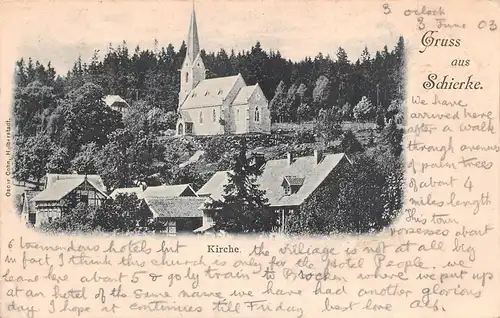 3 oclock
3 June 03
Gruss
aus
Schierke.
We have
arrived here
after a walk
through avenues
of palm trees
of about 4
miles length
This town
possesses about
Oscar Cohn, Halberstadt.
Kirche.
6 tremendous hotels but the village is not at all big
in fact I think this church is only for the Hotel People. we
leave here about 5 & go by train to Brocken, where we put up
at an hotel of the same name we have had another glorious
day I hope it continues till Friday best love